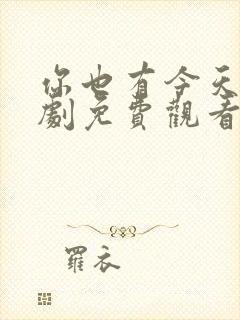 你也有今天
劇免費觀看
羅衣